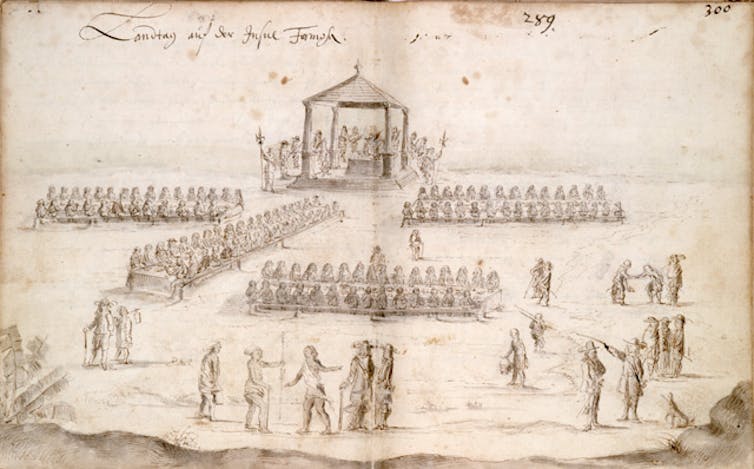 Landtag auf der Insul Formosa.
289
300